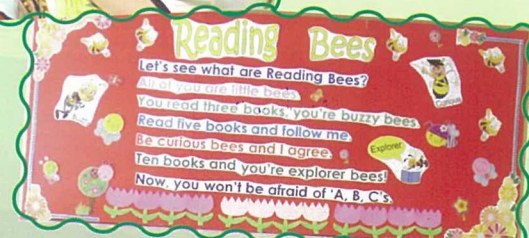 Reading Bees
Let's see what are Reading Bees?
All of you are little bees.
You read three books, you're buzzy bees
Read five books and follow me
Be curious bees and I agree.
Ten books and you're explorer bees!
Now, you won't be afraid of 'A, B, C's.
Curious
Explorer